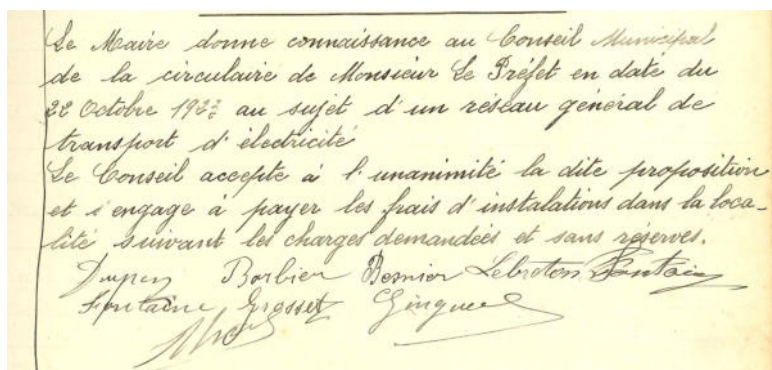 Le Maire donne connaissance au Conseil Municipal
de la circulaire de Monsieur Le Préfet en date du
22 Octobre 1922 au sujet d'un réseau général de
transport d'électricité
Le Conseil accepte à l'unanimité la dite proposition
et s'engage à payer les frais d'instalations dans la loca-
lité suivant les charges demandées et sans réserves.
Barbier Besnier Lebreton
Fontaine Grosset